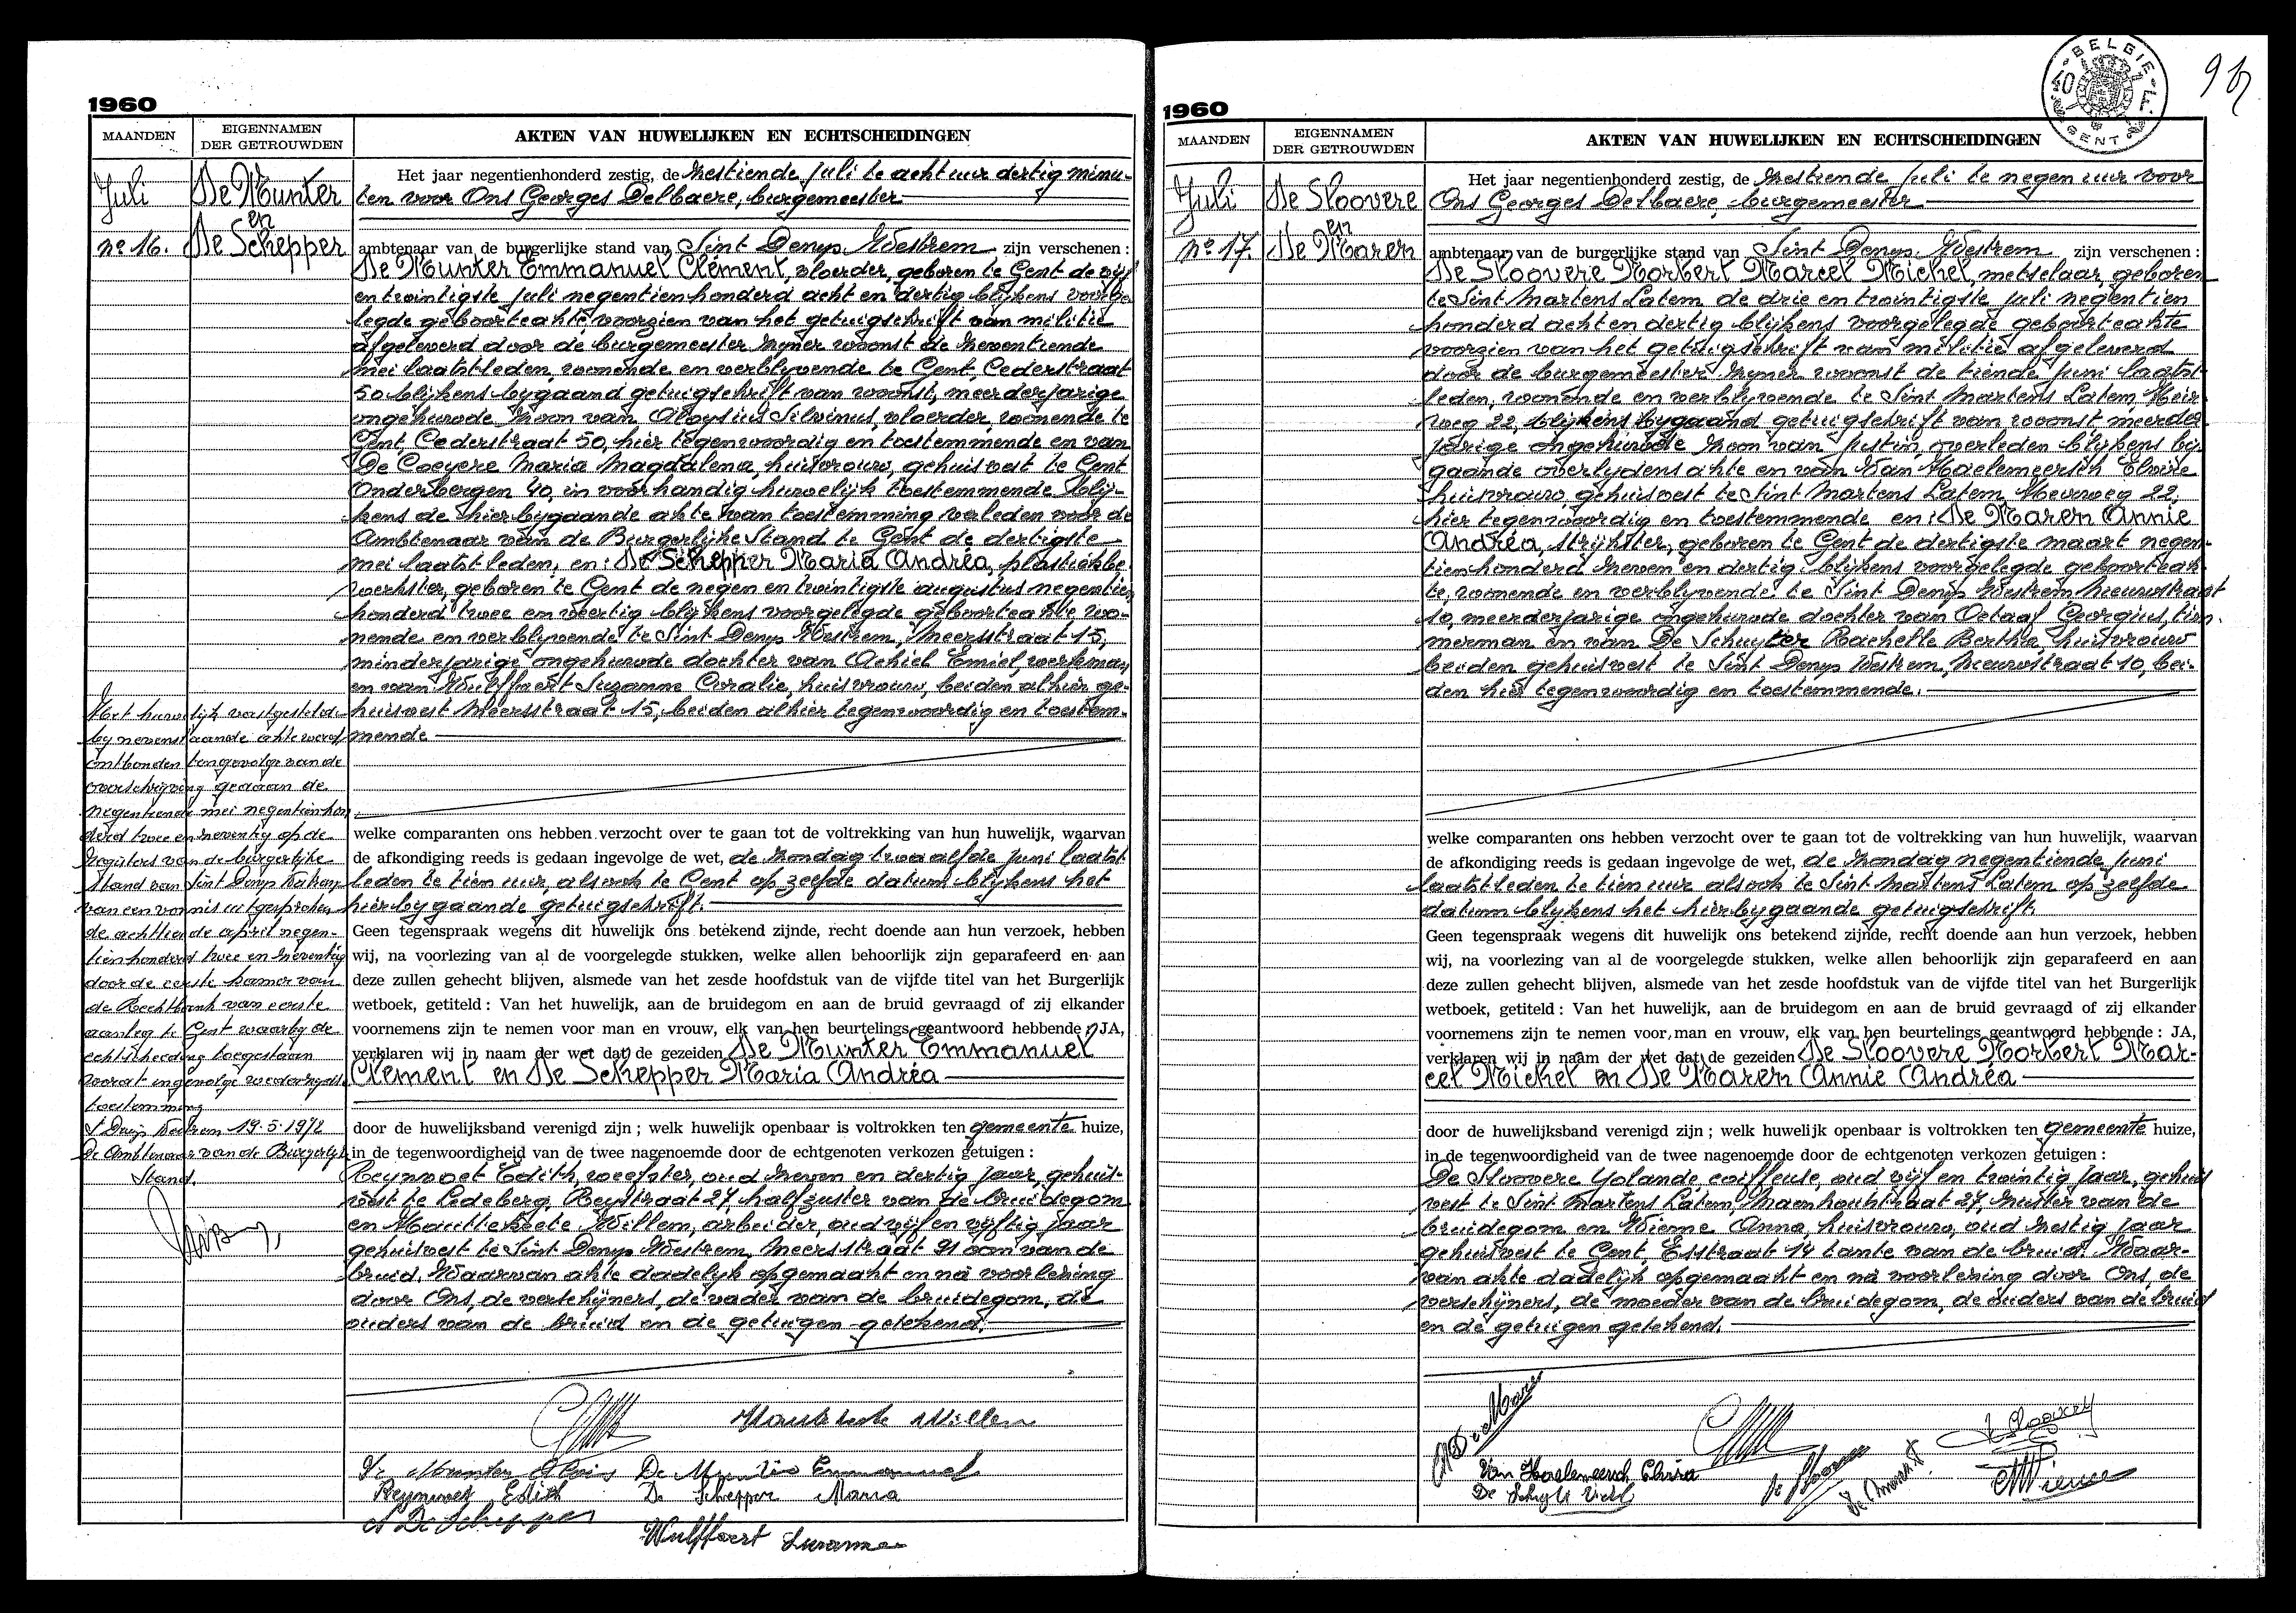 1960
MAANDEN
EIGENNAMEN
DER GETROUWDEN
AKTEN VAN HUWELIJKEN EN ECHTSCHEIDINGEN
Juli
nº 16.
De Munter
en
De Schepper
Het jaar negentienhonderd zestig, de zestiende juli te acht uur dertig minu-
ten voor Ons Georges Delbaere, burgemeester
ambtenaar van de burgerlijke stand van Sint Denys Westrem zijn verschenen :
De Munter Emmanuel Clément, vloerder, geboren te Gent de vijf
en twintigste juli negentienhonderd acht en dertig blijkens voorge
legde geboorteakte, voorzien van het getuigschrift van militie
afgeleverd door de burgemeester zyner woonst de zeventiende
mei laatstleden, wonende en verblyvende te Gent, Cederstraat
50 blijkens bygaand getuigschrift van woonst, meerderjarige
ongehuwde zoon van Aloysius Silvinus, vloerder, wonende te
Gent, Cederstraat 50, hier tegenwoordig en toestemmende en van
De Coeyere Maria Magdalena, huisvrouw, gehuisvest te Gent
Onderbergen 40, in voorhandig huwelijk toestemmende blij-
kens de hierbygaande akte van toestemming verleden voor de
Ambtenaar van de Burgerlijke Stand te Gent de dertigste
mei laatstleden, en : De Schepper Maria Andréa, plastiekbe
werkster, geboren te Gent de negen en twintigste augustus negentien
honderd twee en veertig blijkens voorgelegde geboorteakte, wo-
nende en verblyvende te Sint Denys Westrem, Meersstraat 15,
minderjarige ongehuwde dochter van Achiel Emiel, werkman
en van Wulffaert Suzanne Coralie, huisvrouw, beiden alhier ge-
huisvest Meersstraat 15, beiden alhier tegenwoordig en toestem-
mende
welke comparanten ons hebben verzocht over te gaan tot de voltrekking van hun huwelijk, waarvan
de afkondiging reeds is gedaan ingevolge de wet, de zondag twaalfde juni laatst
leden te tien uur, alsook te Gent op zelfde datum blijkens het
hierbygaande getuigschrift.
Geen tegenspraak wegens dit huwelijk ons betekend zijnde, recht doende aan hun verzoek, hebben
wij, na voorlezing van al de voorgelegde stukken, welke allen behoorlijk zijn geparafeerd en aan
deze zullen gehecht blijven, alsmede van het zesde hoofdstuk van de vijfde titel van het Burgerlijk
wetboek, getiteld : Van het huwelijk, aan de bruidegom en aan de bruid gevraagd of zij elkander
voornemens zijn te nemen voor man en vrouw, elk van hen beurtelings geantwoord hebbende : JA,
verklaren wij in naam der wet dat de gezeiden De Munter Emmanuel
Clément en De Schepper Maria Andréa
door de huwelijksband verenigd zijn ; welk huwelijk openbaar is voltrokken ten gemeente huize,
in de tegenwoordigheid van de twee nagenoemde door de echtgenoten verkozen getuigen :
Reynvoet Edith, weefster, oud zeven en dertig jaar, gehuis-
vest te Ledeberg, Reystraat 27, halfzuster van de bruidegom
en Hauttekeete Willem, arbeider, oud vijf en vijftig jaar
gehuisvest te Sint Denys Westrem, Meersstraat 91 oom van de
bruid. Waarvan akte dadelijk opgemaakt en na voorlezing
door Ons, de verschijners, de vader van de bruidegom, de
ouders van de bruid en de getuigen getekend.
Het huwelijk vastgesteld
by nevenstaande akte werd
ontbonden tengevolge van de
overschrijving gedaan de
negentiende mei negentienhon
derd twee en zeventig op de
registers van de burgerlijke
stand van Sint Denys Westrem
van een vonnis uitgesproken
de achttiende april negen-
tienhonderd twee en zeventig
door de eerste kamer van
de Rechtbank van eerste
aanleg te Gent waarby de
echtscheiding toegestaan
wordt ingevolge wederzydse
toestemming
St Denijs Westrem 19.5.1972
De Ambtenaar van de Burgerlyke
Stand.
Hauttekeete Willem
De Munter Alois De Munter Emmanuel
Reynvoet Edith De Schepper Maria
A De Schepper
Wulffaert Suzanne
BELGIE
40 F
GENT
1960
MAANDEN
EIGENNAMEN
DER GETROUWDEN
AKTEN VAN HUWELIJKEN EN ECHTSCHEIDINGEN
Juli
nº 17.
De Sloovere
en
De Maren
Het jaar negentienhonderd zestig, de zestiende juli te negen uur voor
Ons Georges Delbaere, burgemeester
ambtenaar van de burgerlijke stand van Sint Denys Westrem zijn verschenen :
De Sloovere Norbert Marcel Michel, metselaar, geboren
te Sint Martens Latem de drie en twintigste juli negentien
honderd acht en dertig blijkens voorgelegde geboorteakte
voorzien van het getuigschrift van militie afgeleverd
door de burgemeester zyner woonst de tiende juni laatst-
leden, wonende en verblyvende te Sint Martens Latem, Meir-
weg 22, blijkens bygaand getuigschrift van woonst, meerder
jarige ongehuwde zoon van Justin, overleden blijkens by
gaande overlydens akte en van Van Haelemeersch Elvire
huisvrouw, gehuisvest te Sint Martens Latem, Meirweg 22,
hier tegenwoordig en toestemmende en : De Maren Annie
Andréa, strijkster, geboren te Gent de dertigste maart negen-
tienhonderd zeven en dertig blijkens voorgelegde geboorteak-
te, wonende en verblyvende te Sint Denys Westrem Nieuwstraat
10, meerderjarige ongehuwde dochter van Octaaf Georgius, tim-
merman en van De Schuyter Rachelle Bertha, huisvrouw
beiden gehuisvest te Sint Denys Westrem, Nieuwstraat 10, bei-
den hier tegenwoordig en toestemmende.
welke comparanten ons hebben verzocht over te gaan tot de voltrekking van hun huwelijk, waarvan
de afkondiging reeds is gedaan ingevolge de wet, de zondag negentiende juni
laatstleden te tien uur alsook te Sint Martens Latem op zelfde
datum blijkens het hierbygaande getuigschrift.
Geen tegenspraak wegens dit huwelijk ons betekend zijnde, recht doende aan hun verzoek, hebben
wij, na voorlezing van al de voorgelegde stukken, welke allen behoorlijk zijn geparafeerd en aan
deze zullen gehecht blijven, alsmede van het zesde hoofdstuk van de vijfde titel van het Burgerlijk
wetboek, getiteld : Van het huwelijk, aan de bruidegom en aan de bruid gevraagd of zij elkander
voornemens zijn te nemen voor man en vrouw, elk van hen beurtelings geantwoord hebbende : JA,
verklaren wij in naam der wet dat de gezeiden De Sloovere Norbert Mar-
cel Michel en De Maren Annie Andréa
door de huwelijksband verenigd zijn ; welk huwelijk openbaar is voltrokken ten gemeente huize,
in de tegenwoordigheid van de twee nagenoemde door de echtgenoten verkozen getuigen :
De Sloovere Yolande coiffeuse, oud vijf en twintig jaar, gehuis
vest te Sint Martens Latem, Maenhoutstraat 27, zuster van de
bruidegom en Wienne Anna, huisvrouw, oud zestig jaar
gehuisvest te Gent, Esstraat 14 tante van de bruid. Waar-
van akte dadelijk opgemaakt en na voorlezing door Ons, de
verschijners, de moeder van de bruidegom, de ouders van de bruid
en de getuigen getekend.
Van Haelemeersch Elvira